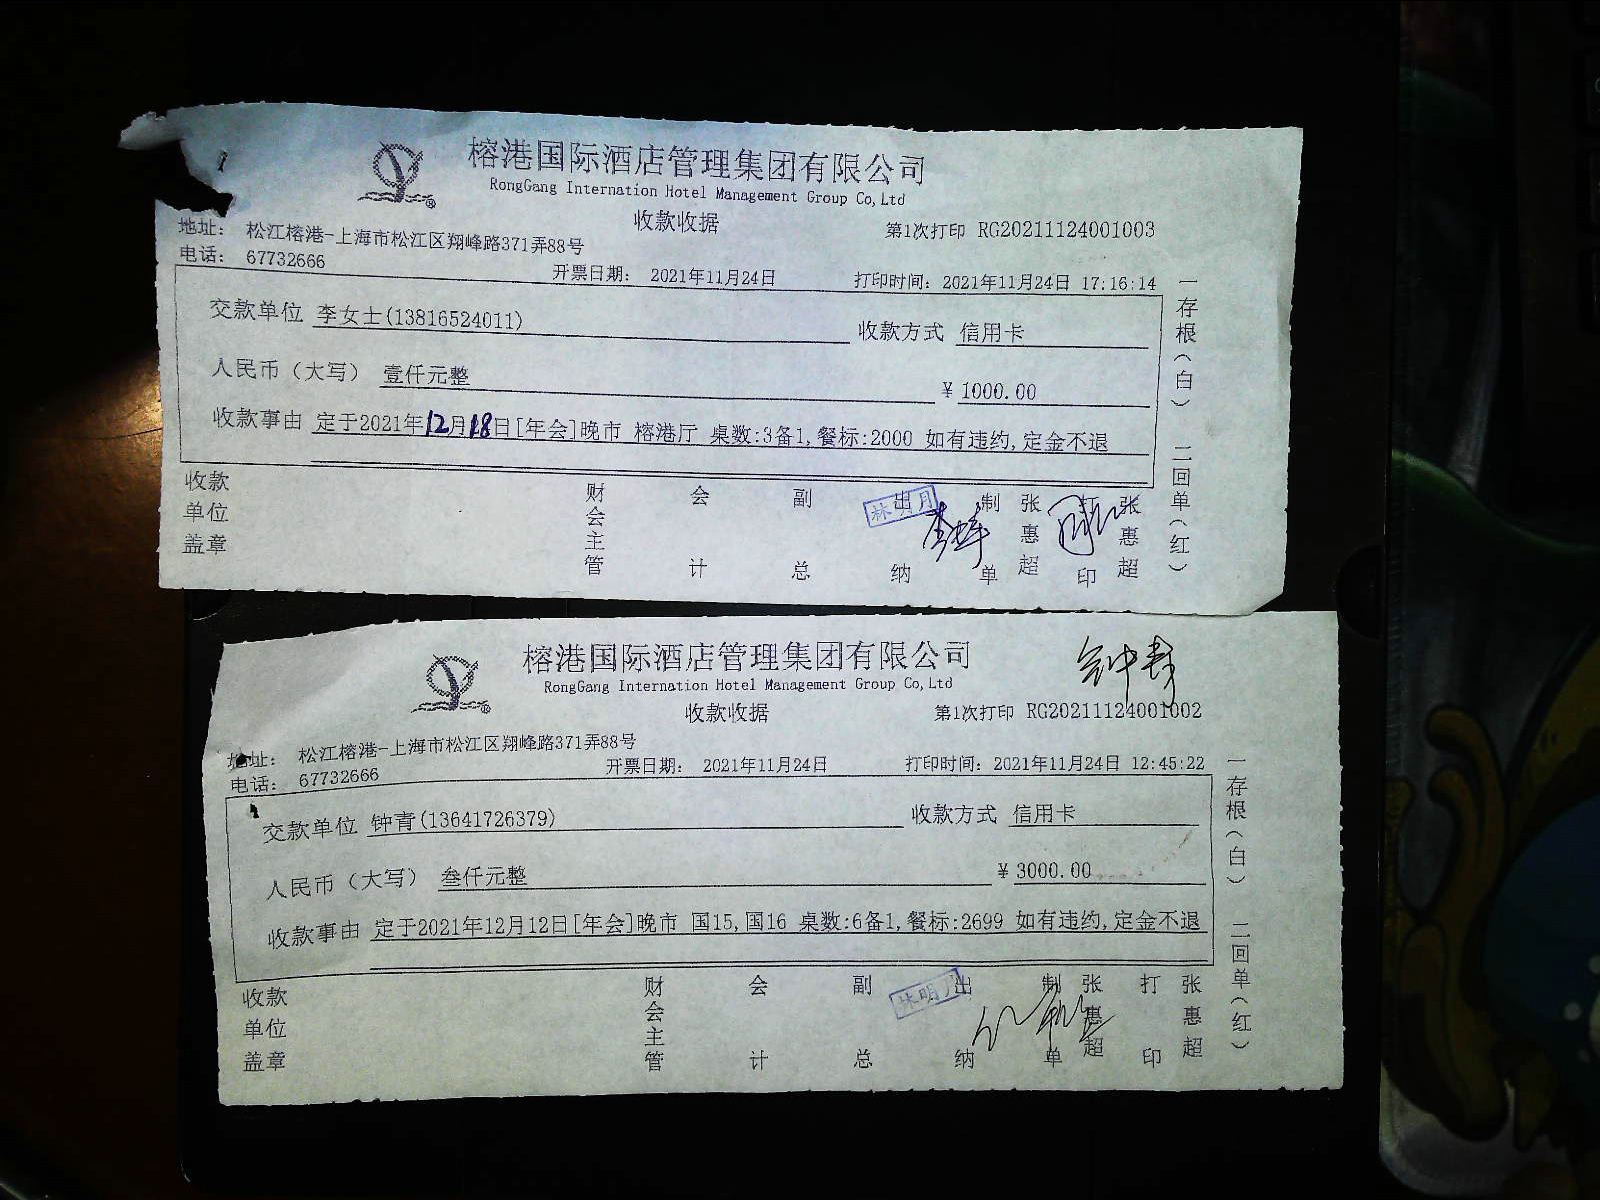 榕港国际酒店管理集团有限公司
RongGang Internation Hotel Management Group Co,Ltd
收款收据
第1次打印 RG20211124001003
地址: 松江榕港-上海市松江区翔峰路371弄88号
电话: 67732666
开票日期: 2021年11月24日
打印时间: 2021年11月24日 17:16:14
交款单位 李女士(13816524011)
收款方式 信用卡
人民币（大写） 壹仟元整
¥ 1000.00
收款事由 定于2021年12月18日[年会]晚市 榕港厅 桌数:3备1,餐标:2000 如有违约,定金不退
收款单位盖章
财会主管
会计
副总
出纳
林明月
制单
张惠超
打印
张惠超
一存根（白） 二回单（红）
榕港国际酒店管理集团有限公司
RongGang Internation Hotel Management Group Co,Ltd
收款收据
第1次打印 RG20211124001002
地址: 松江榕港-上海市松江区翔峰路371弄88号
电话: 67732666
开票日期: 2021年11月24日
打印时间: 2021年11月24日 12:45:22
交款单位 钟青(13641726379)
收款方式 信用卡
人民币（大写） 叁仟元整
¥ 3000.00
收款事由 定于2021年12月12日[年会]晚市 国15,国16 桌数:6备1,餐标:2699 如有违约,定金不退
收款单位盖章
财会主管
会计
副总
出纳
林明月
制单
张惠超
打印
张惠超
一存根（白） 二回单（红）